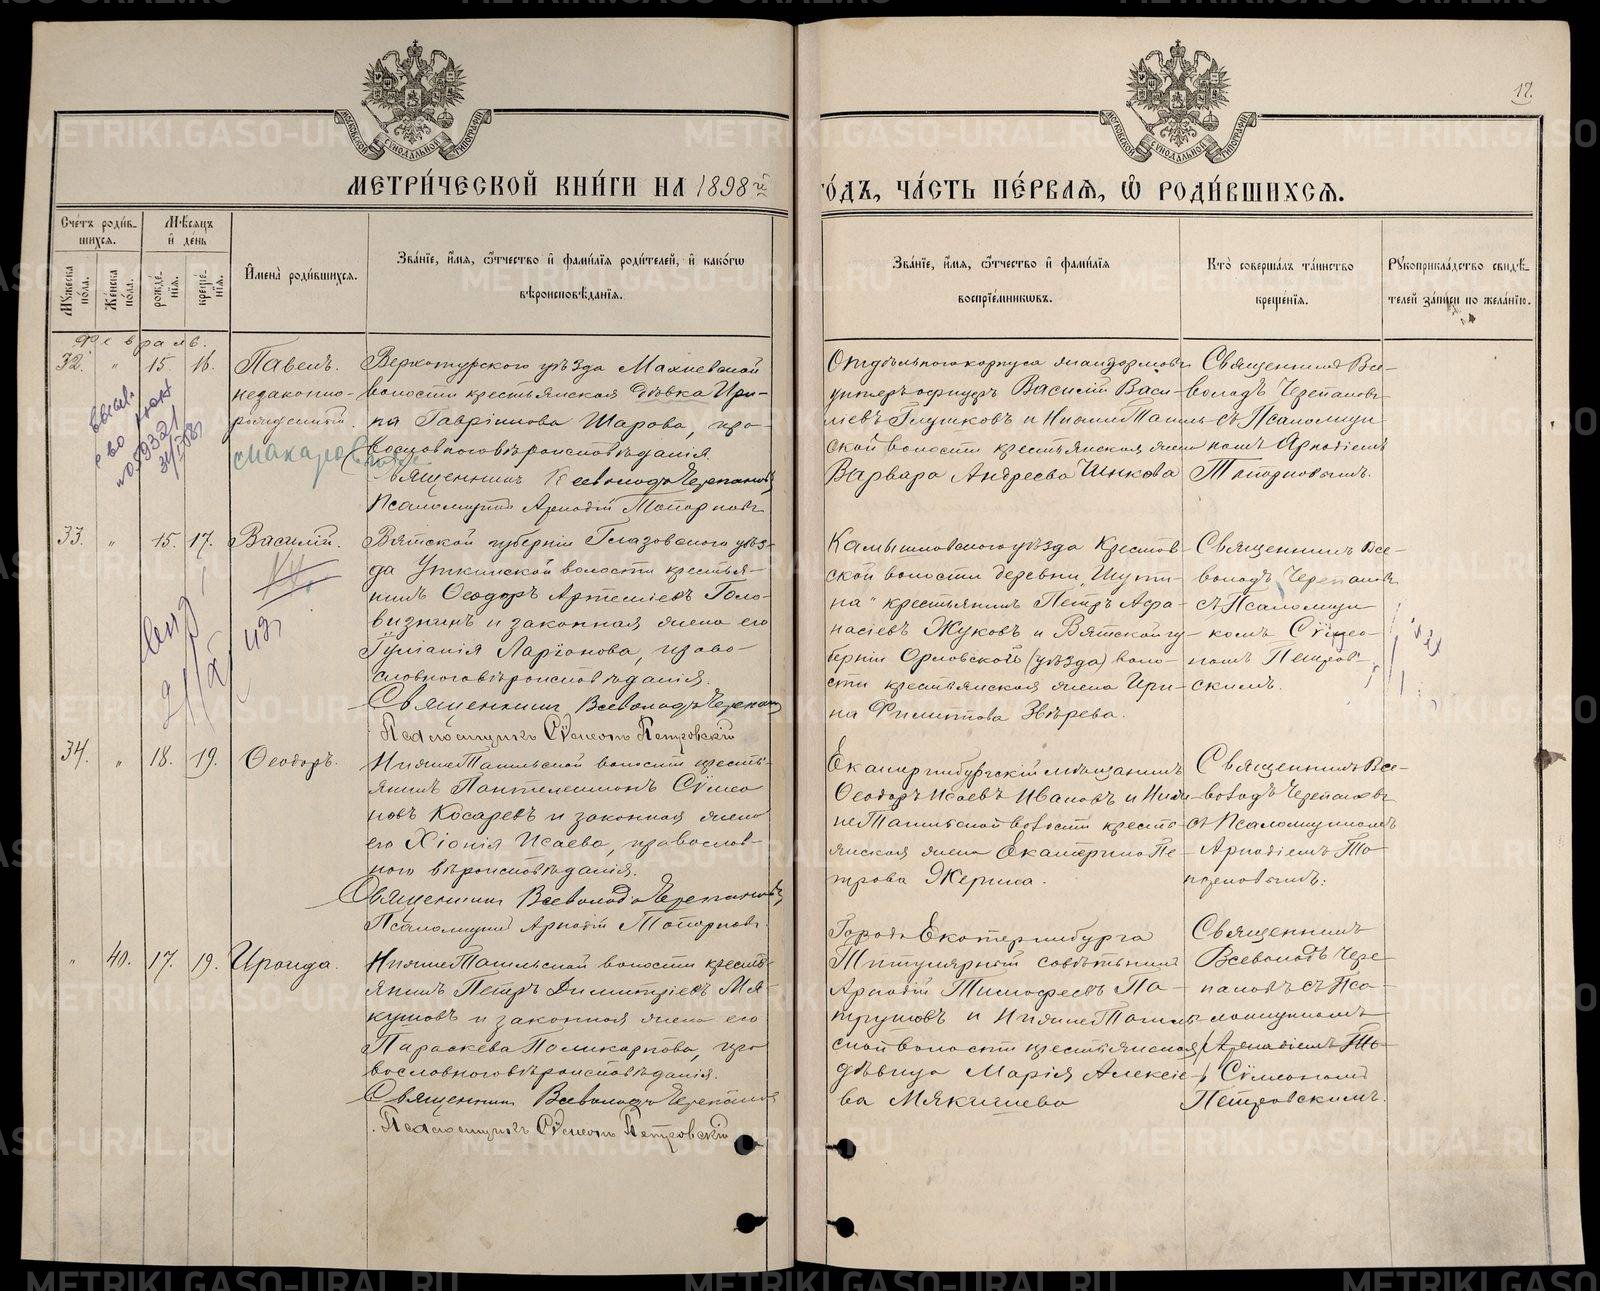 12.
МЕТРИ́ЧЕСКОЙ КНИ́ГИ НА 1898 й
ГО́ДЪ, ЧА́СТЬ ПЕ́РВАЯ, Ѡ РОДИ́ВШИХСЯ.
Счетъ родив-
шихся.
Мѣсяцъ
и день
Мужеска пола.
Женска пола.
рожденія.
крещенія.
Имена родившихся.
Званіе, имя, отчество и фамилія родителей, и какогѡ
вѣроисповѣданія.
Званіе, имя, отчество и фамилія
воспріемниковъ.
Кто совершалъ таинство
крещенія.
Рукоприкладство свидѣ-
телей записи по желанію.
Февраль.
32. " 15. 16.
Павелъ.
незаконно-
рожденный.
Макаров
Верхотурскаго уѣзда Махневской
волости крестьянская дѣвка Ири-
на Гавріилова Шарова, пра-
вославнаго вѣроисповѣданія.
Священникъ Всеволодъ Черепановъ
Псаломщикъ Аркадій Топорковъ
Отдѣльнаго корпуса жандармовъ
унтеръ-офицеръ Василій Васи-
ліевъ Глушковъ и Нижне Тагиль-
ской волости крестьянская жена
Варвара Андреева Шикова
Священникъ Все-
володъ Черепановъ
съ Псаломщи-
комъ Аркадіемъ
33. " 15. 17.
Василій.
Вятской губерніи Глазовскаго уѣз-
да Уканской волости крестья-
нинъ Ѳеодоръ Артеміевъ Голо-
визнинъ и законная жена его
Іуліанія Ларіонова, право-
славнаго вѣроисповѣданія.
Священникъ Всеволодъ Черепановъ
Псаломщикъ Сѵмеонъ Петровскій
Камышловскаго уѣзда Крестов-
ской волости деревни
крестьянинъ Петръ Афа-
насіевъ Жуковъ и Вятской гу-
берніи Орловскаго (уѣзда) воло-
сти крестьянская жена Ири-
на Филиппова Звѣрева.
Священникъ Все-
володъ Черепановъ
съ Псаломщи-
комъ Сѵмео-
номъ Петров-
скимъ.
34. " 18. 19.
Ѳеодоръ.
НижнеТагильской волости кресть-
янинъ Пантелеимонъ Сѵмео-
новъ Косаревъ и законная жена
его Хіонія Исаева, православ-
наго вѣроисповѣданія.
Священникъ Всеволодъ Черепановъ
Псаломщикъ Аркадій Топорковъ.
Екатеринбургскій мѣщанинъ
Ѳеодоръ Исаевъ Ивановъ и Ниж-
неТагильской волости кресть-
янская жена Екатерина Пе-
трова Жерина.
Священникъ Все-
володъ Черепановъ
съ Псаломщикомъ
Аркадіемъ То-
порковымъ.
" 40. 17. 19.
Ираида.
НижнеТагильской волости кресть-
янинъ Петръ Димитріевъ Мя-
кишовъ и законная жена его
Параскева Поликарпова, пра-
вославнаго вѣроисповѣданія.
Священникъ Всеволодъ Черепановъ
Псаломщикъ Сѵмеонъ Петровскій
Города Екатеринбурга
Титулярный совѣтникъ
Аркадій Тимофеевъ Па-
трушовъ и НижнеТагиль-
ской волости крестьянская
дѣвица Марія Алексіе-
ва Мякишева
Священникъ
Всеволодъ Чере-
пановъ съ Пса-
ломщикомъ
Аркадіемъ То-
Сѵмеономъ
Петровскимъ.
METRIKI.GASO-URAL.RU